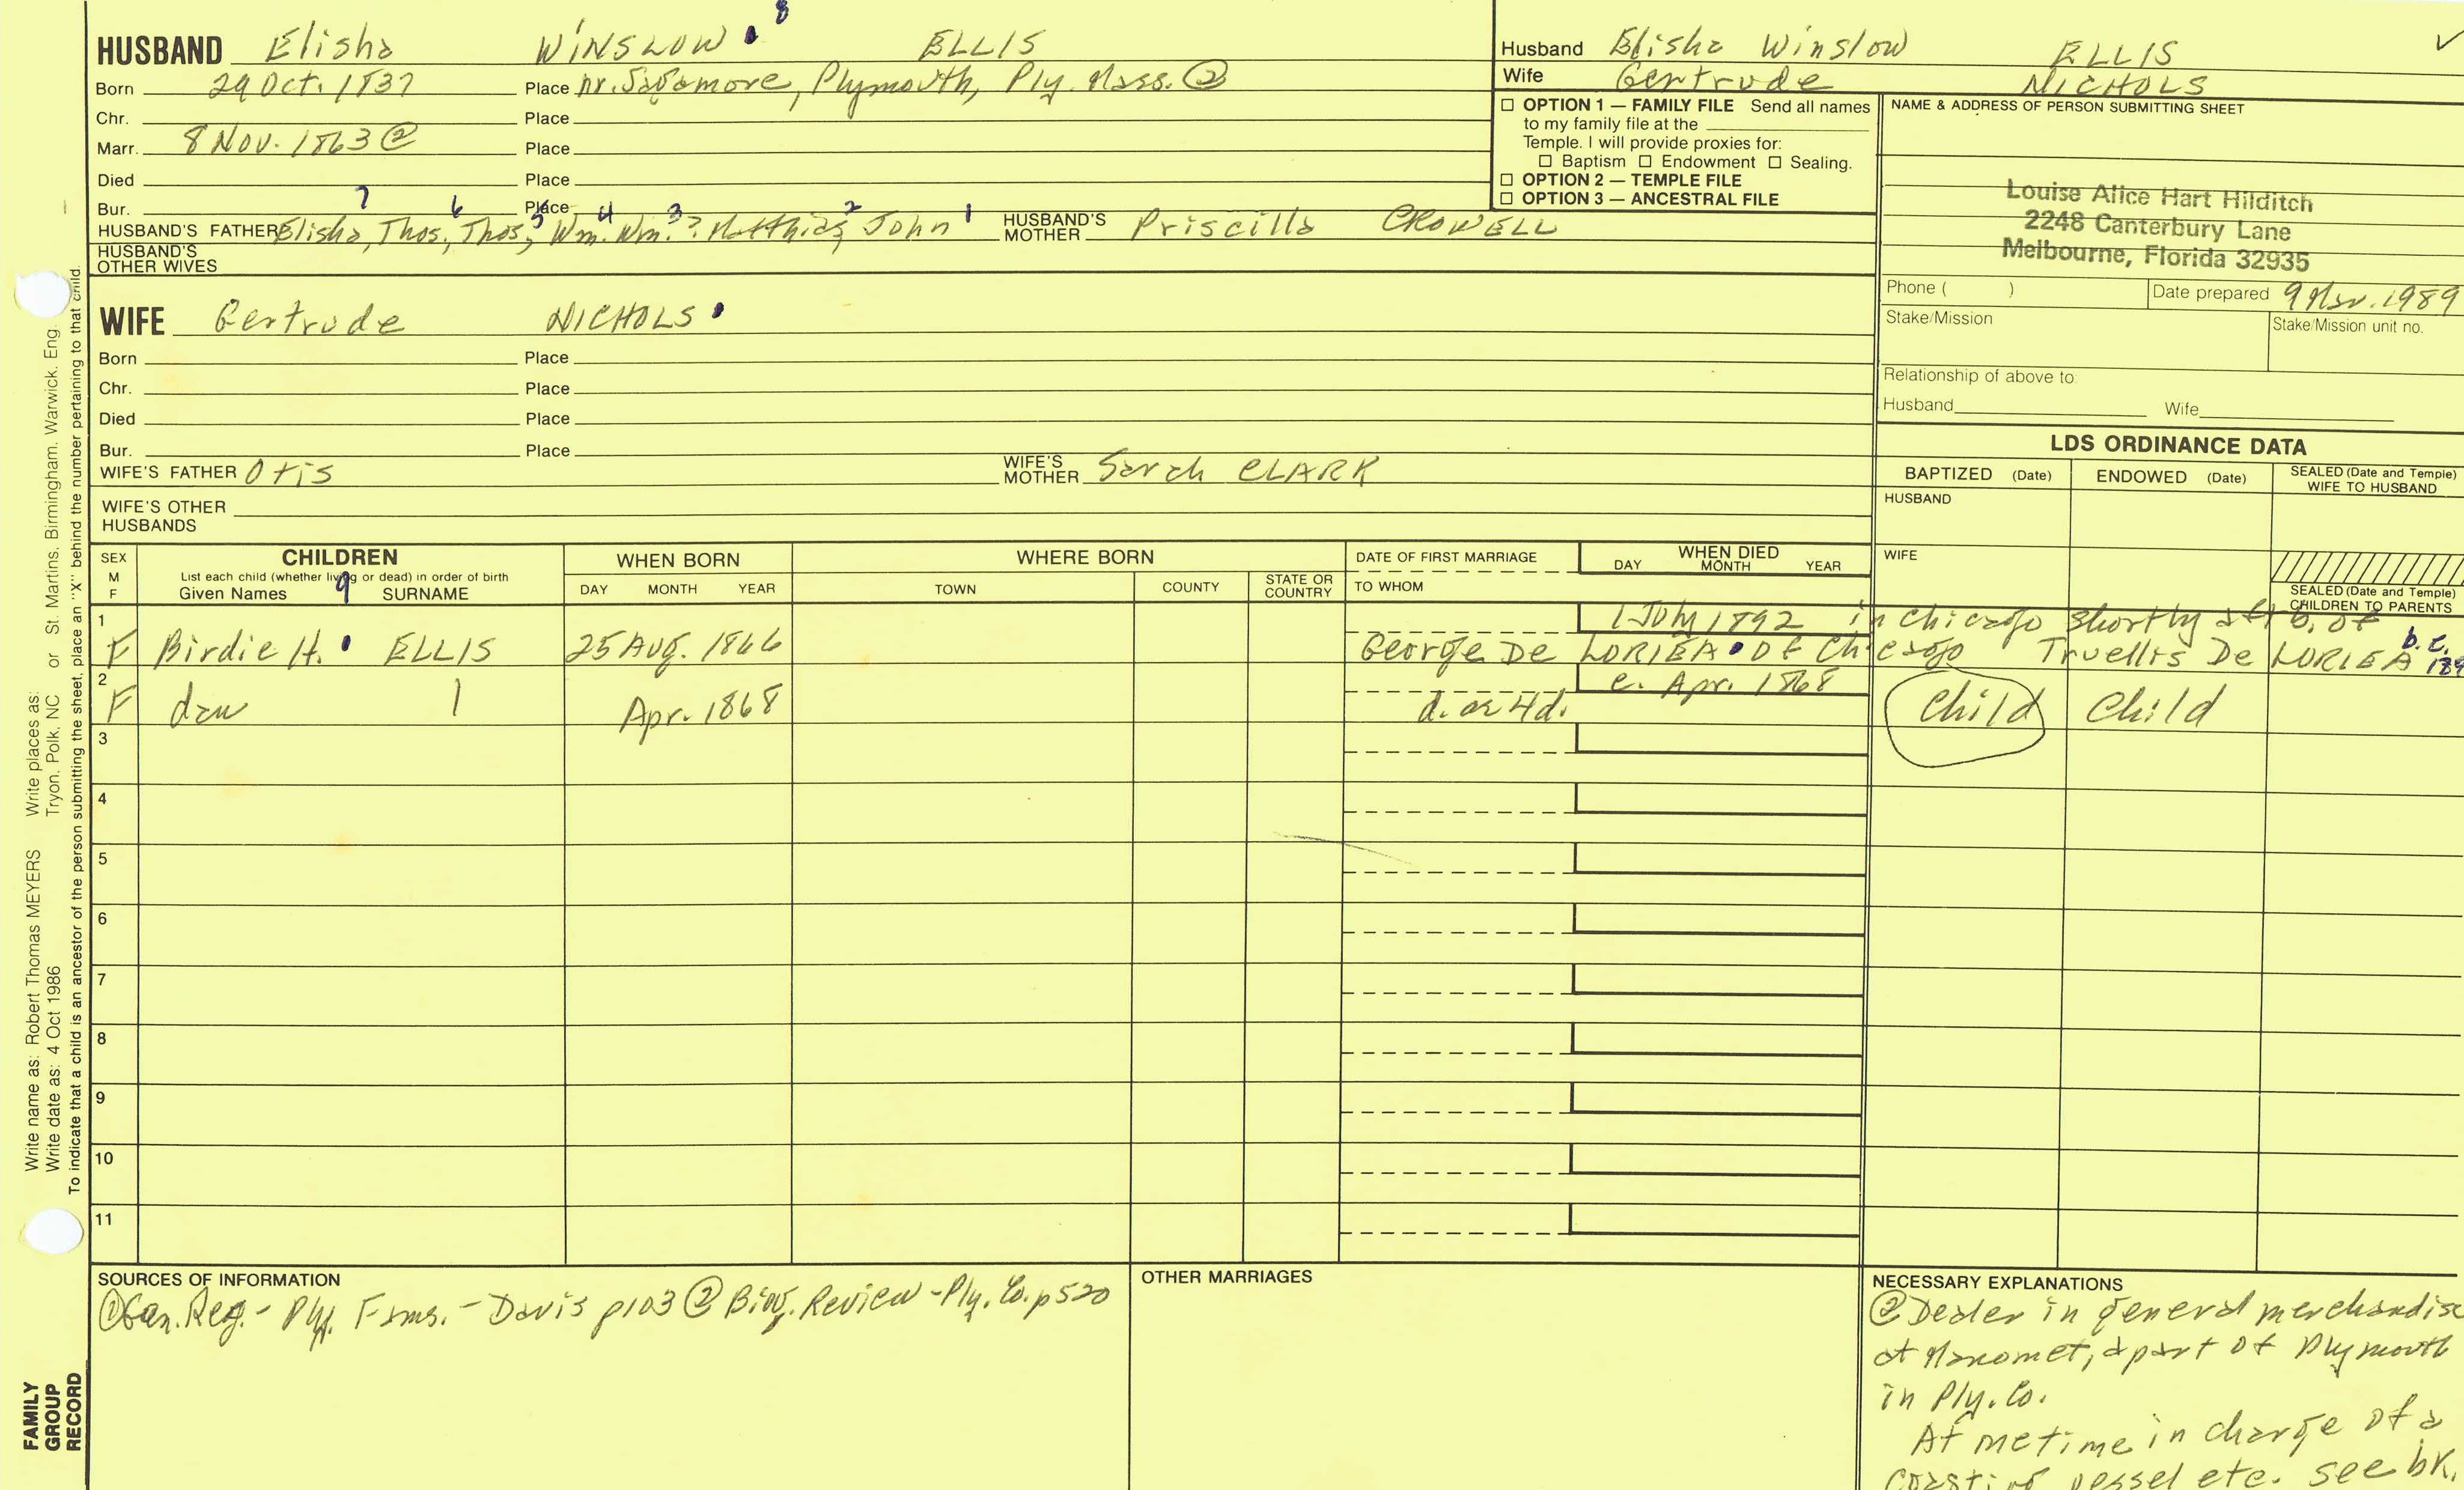 8
HUSBAND Elisha WINSLOW ELLIS
Born 29 Oct. 1837 Place nr. Sagamore, Plymouth, Ply. Mass. ②
Chr. Place
Marr. 8 Nov. 1863 ② Place
Died Place
Bur. Place
7 6 5 4 3 2 1
HUSBAND'S FATHER Elisha, Thos, Thos, Wm. Wm.? Matthias, John HUSBAND'S MOTHER Priscilla CROWELL
HUSBAND'S OTHER WIVES
Husband Elisha Winslow ELLIS ✓
Wife Gertrude NICHOLS
☐ OPTION 1 — FAMILY FILE Send all names
to my family file at the
Temple. I will provide proxies for:
☐ Baptism ☐ Endowment ☐ Sealing.
☐ OPTION 2 — TEMPLE FILE
☐ OPTION 3 — ANCESTRAL FILE
NAME & ADDRESS OF PERSON SUBMITTING SHEET
Louise Alice Hart Hilditch
2248 Canterbury Lane
Melbourne, Florida 32935
Phone ( ) Date prepared 9 Mar. 1989
Stake/Mission Stake/Mission unit no.
Relationship of above to:
Husband Wife
WIFE Gertrude NICHOLS
Born Place
Chr. Place
Died Place
Bur. Place
WIFE'S FATHER Otis WIFE'S MOTHER Sarah CLARK
WIFE'S OTHER HUSBANDS
LDS ORDINANCE DATA
BAPTIZED (Date) ENDOWED (Date) SEALED (Date and Temple) WIFE TO HUSBAND
HUSBAND
WIFE
SEALED (Date and Temple) CHILDREN TO PARENTS
SEX M F CHILDREN WHEN BORN WHERE BORN DATE OF FIRST MARRIAGE WHEN DIED
List each child (whether living or dead) in order of birth
Given Names 9 SURNAME DAY MONTH YEAR TOWN COUNTY STATE OR COUNTRY TO WHOM DAY MONTH YEAR
1 1 July 1892 in Chicago shortly aft b. of
F Birdie H. ELLIS 25 Aug. 1866 George De LORIEA of Chicago Truellis De LORIEA b. c. 189
2 c. Apr. 1868
F dau | Apr. 1868 d. ae 4d. Child Child
3
4
5
6
7
8
9
10
11
SOURCES OF INFORMATION
① Gen. Reg. - Ply. Fams. - Davis p103 ② Biog. Review - Ply. Co. p520
OTHER MARRIAGES
NECESSARY EXPLANATIONS
② Dealer in general merchandise
at Manomet, a part of Plymouth
in Ply. Co.
At metime in charge of a
coasting vessel etc. see bk.
Write name as: Robert Thomas MEYERS Write places as: Tryon, Polk, NC or St. Martins, Birmingham, Warwick, Eng.
Write date as: 4 Oct 1986
To indicate that a child is an ancestor of the person submitting the sheet, place an "X" behind the number pertaining to that child.
FAMILY
GROUP
RECORD